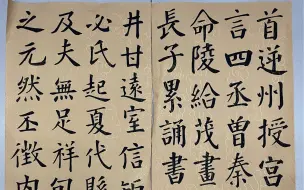 首逆州授宮
言四丞曾秦
命陵給茂畫
長子累誦書
井甘遠室信
必氏起夏代縣
及夫無足祥
之元然丕徵内